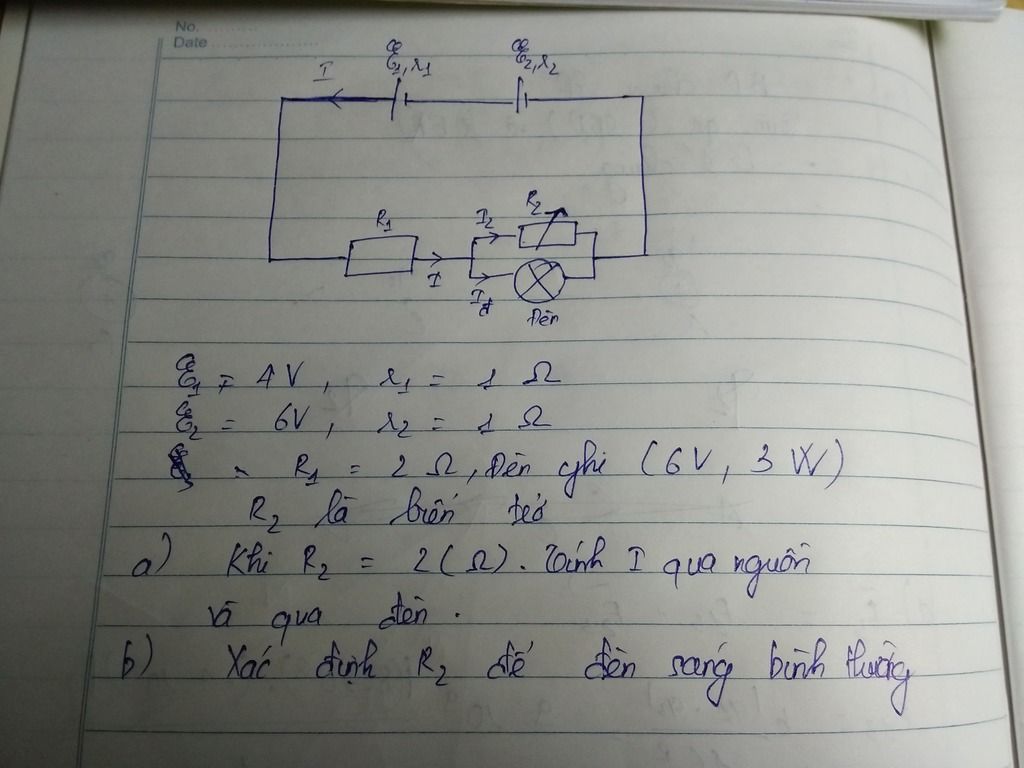 No. ............
Date ....................
I
ℰ1, r1
ℰ2, r2
R1
I
I2
R2
Iđ
Đèn
ℰ1 = 4V, r1 = 1 Ω
ℰ2 = 6V, r2 = 1 Ω
R1 = 2 Ω, Đèn ghi (6V, 3W)
R2 là biến trở
a) Khi R2 = 2(Ω). Tính I qua nguồn
và qua đèn.
b) Xác định R2 để đèn sáng bình thường